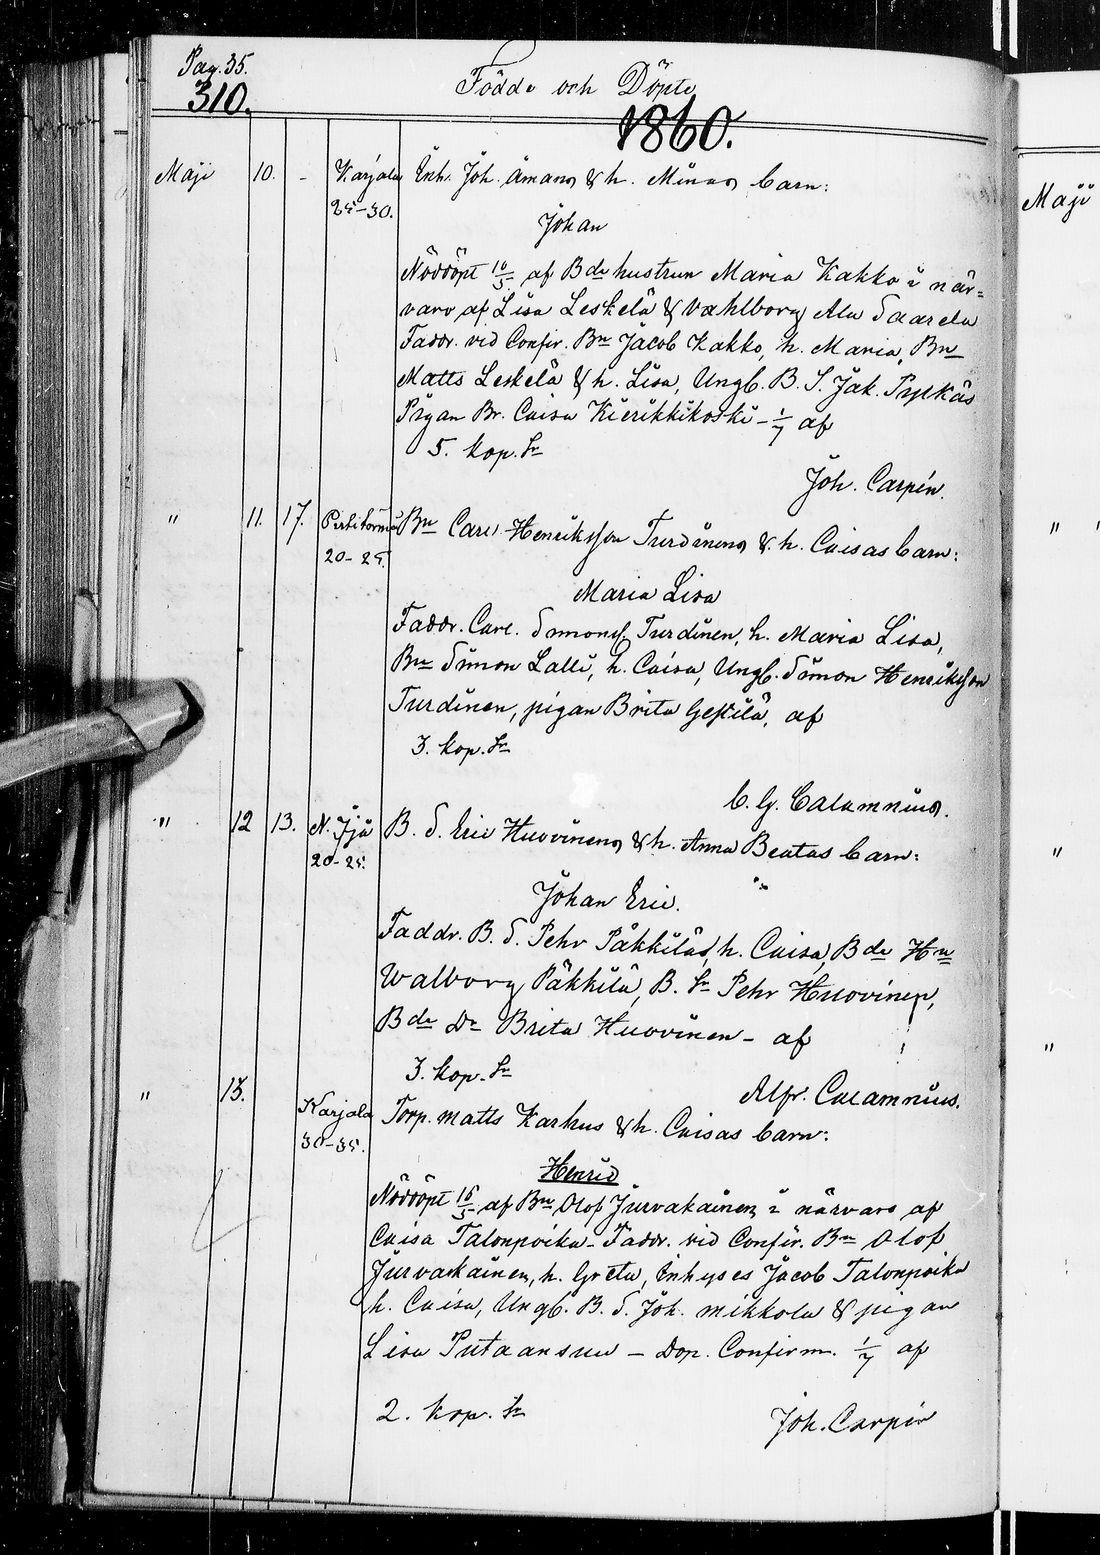 Pag. 35.
310.
Födde och Döpte
1860.
Maji 10. - Karjala Inh. Joh. Åmans & h. Minas barn:
25-30.
Johan
Nöddöpt 10/5 af Bde hustrun Maria Kakko i när=
varo af Lisa Leskelä & Wahlborg Ala Saarela
Faddr. vid Confir. Bn Jacob Kakko, h. Maria, Bn
Matts Leskelä & h. Lisa, Ungk. B. S. Jak. Pyrkäs
Pigan Br. Caisa Kierikkikoski - 1/7 af
5. kop. Sr
Joh. Carpén.
" 11. 17. Bn Carl Henriksson Turdinens & h. Caisas barn:
20-25
Maria Lisa
Faddr. Carl. Simons. Turdinen, h. Maria Lisa,
Bn Simon Lalli, h. Caisa, Ungk. Simon Henriksson
Turdinen, pigan Brita Gestilä, af
3. kop. Sr
C. G. Calamnius.
" 12 13. N. Ijå B. S. Eric Huovinens & h. Anna Beatas barn:
20-25.
Johan Eric.
Faddr. B. S. Pehr Päkkiläs, h. Caisa, Bde Hn
Walborg Päkkilä, B. Sn Pehr Huovinen,
Bde Dr Brita Huovinen - af
3. kop. Sr
Alfr. Calamnius.
" 15. Karjala Torp. Matts Karhus & h. Caisas barn:
30-35.
Henric
Nöddöpt 15/5 af Bn Olof Jurvakainen i närvaro af
Caisa Talonpoika - Faddr. vid Confir. Bn Olof
Jurvakainen, h. Greta, Inhyses Jacob Talonpoika
h. Caisa, Ungk. B. S. Joh. Mikkola & pigan
Lisa Putaansuu - Dop. Confirm. 1/7 af
2. kop. Sr
Joh. Carpén
Maji
"
"
"